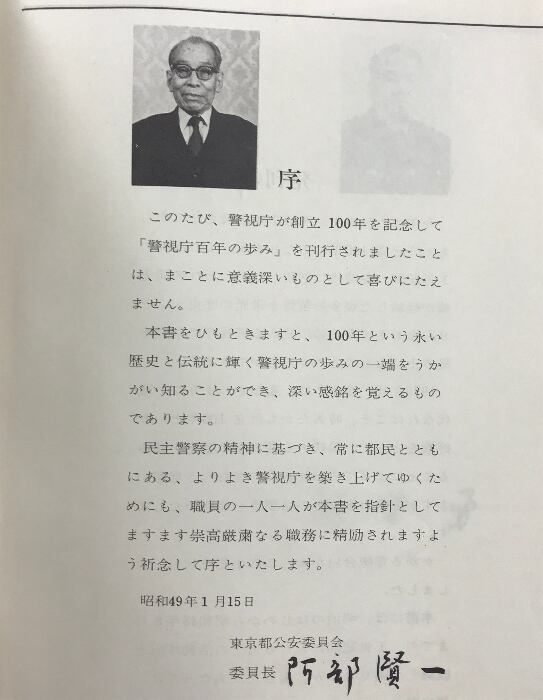 序
このたび、警視庁が創立 100年を記念して
「警視庁百年の歩み」を刊行されましたこと
は、まことに意義深いものとして喜びにたえ
ません。
本書をひもときますと、 100年という永い
歴史と伝統に輝く警視庁の歩みの一端をうか
がい知ることができ、深い感銘を覚えるもの
であります。
民主警察の精神に基づき、常に都民ととも
にある、よりよき警視庁を築き上げてゆくた
めにも、職員の一人一人が本書を指針として
ますます崇高厳粛なる職務に精励されますよ
う祈念して序といたします。
昭和49年 1 月15日
東京都公安委員会
委員長 阿部賢一